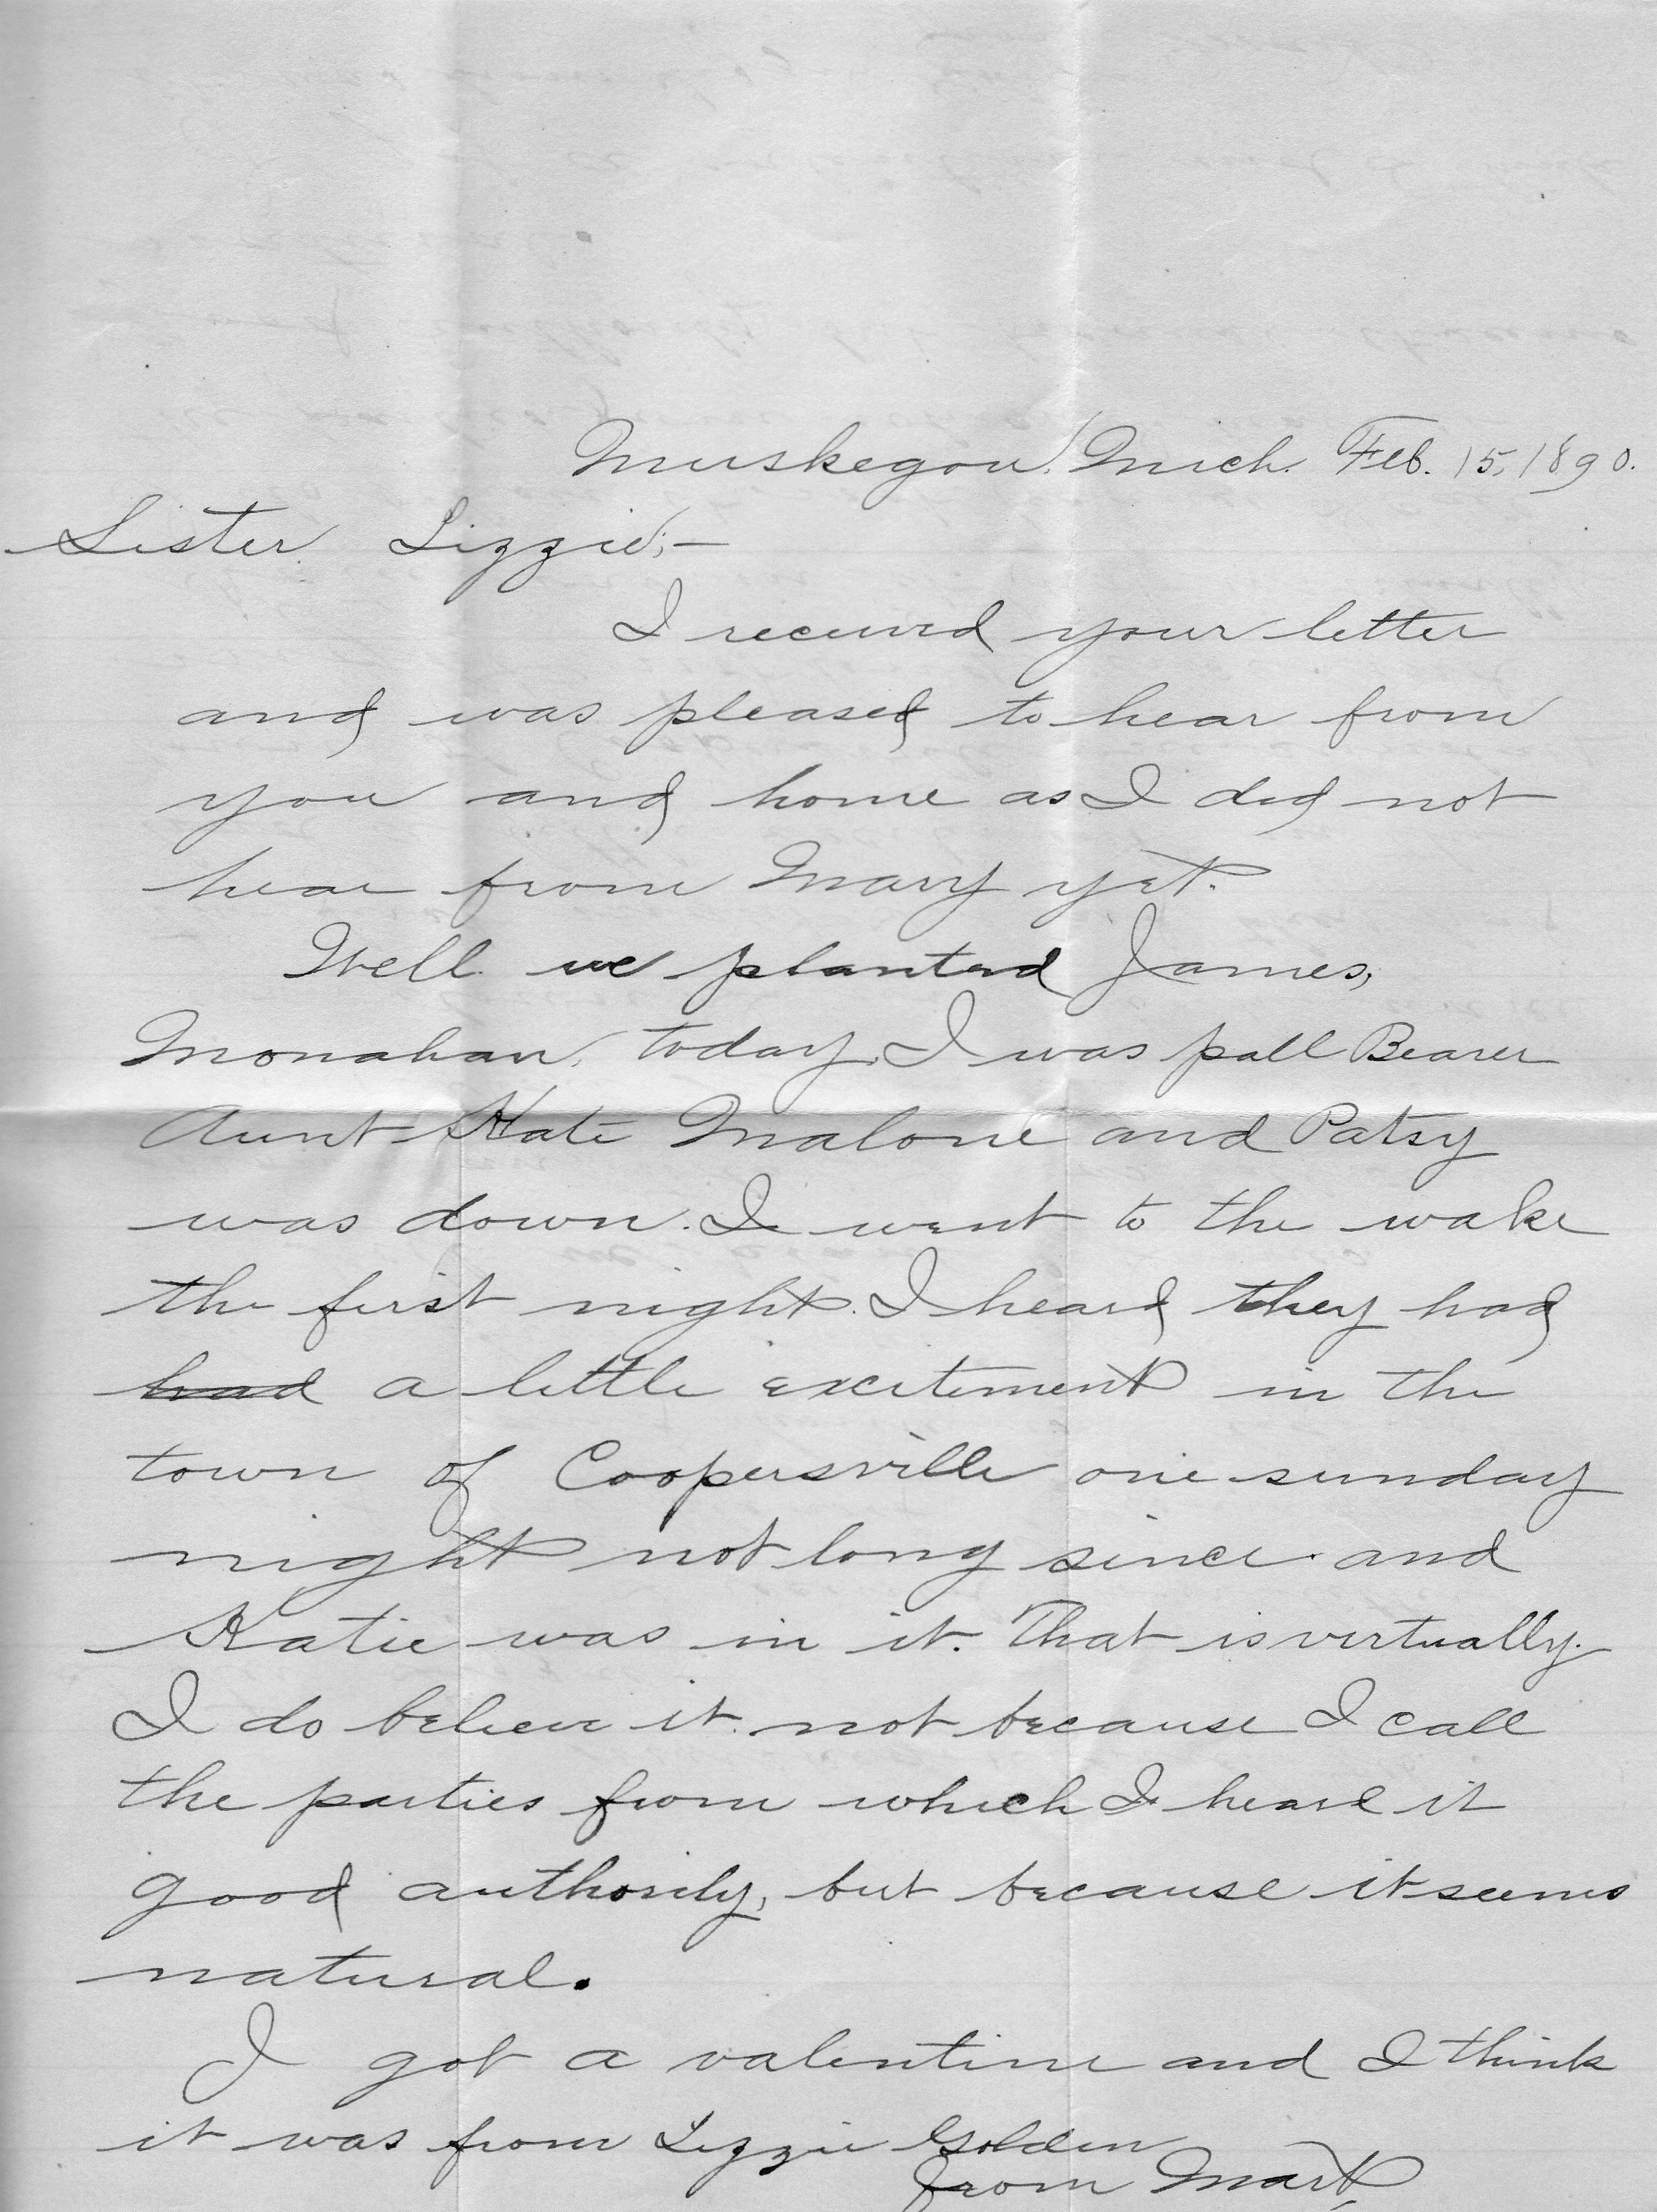 Muskegon, Mich. Feb. 15, 1890.
Sister Lizzie;—
I received your letter
and was pleased to hear from
you and home as I did not
hear from Mary yet.
Well we planted James,
Monahan, today, I was pall Bearer
Aunt Kate Malone and Patsy
was down. I went to the wake
the first night. I heard they had
had a little excitement in the
town of Coopersville one sunday
night not long since and
Katie was in it. That is virtually.
I do believe it not because I call
the parties from which I heard it
good authority, but because it seems
natural.
I got a valentine and I think
it was from Lizzie Golden
from Mart,